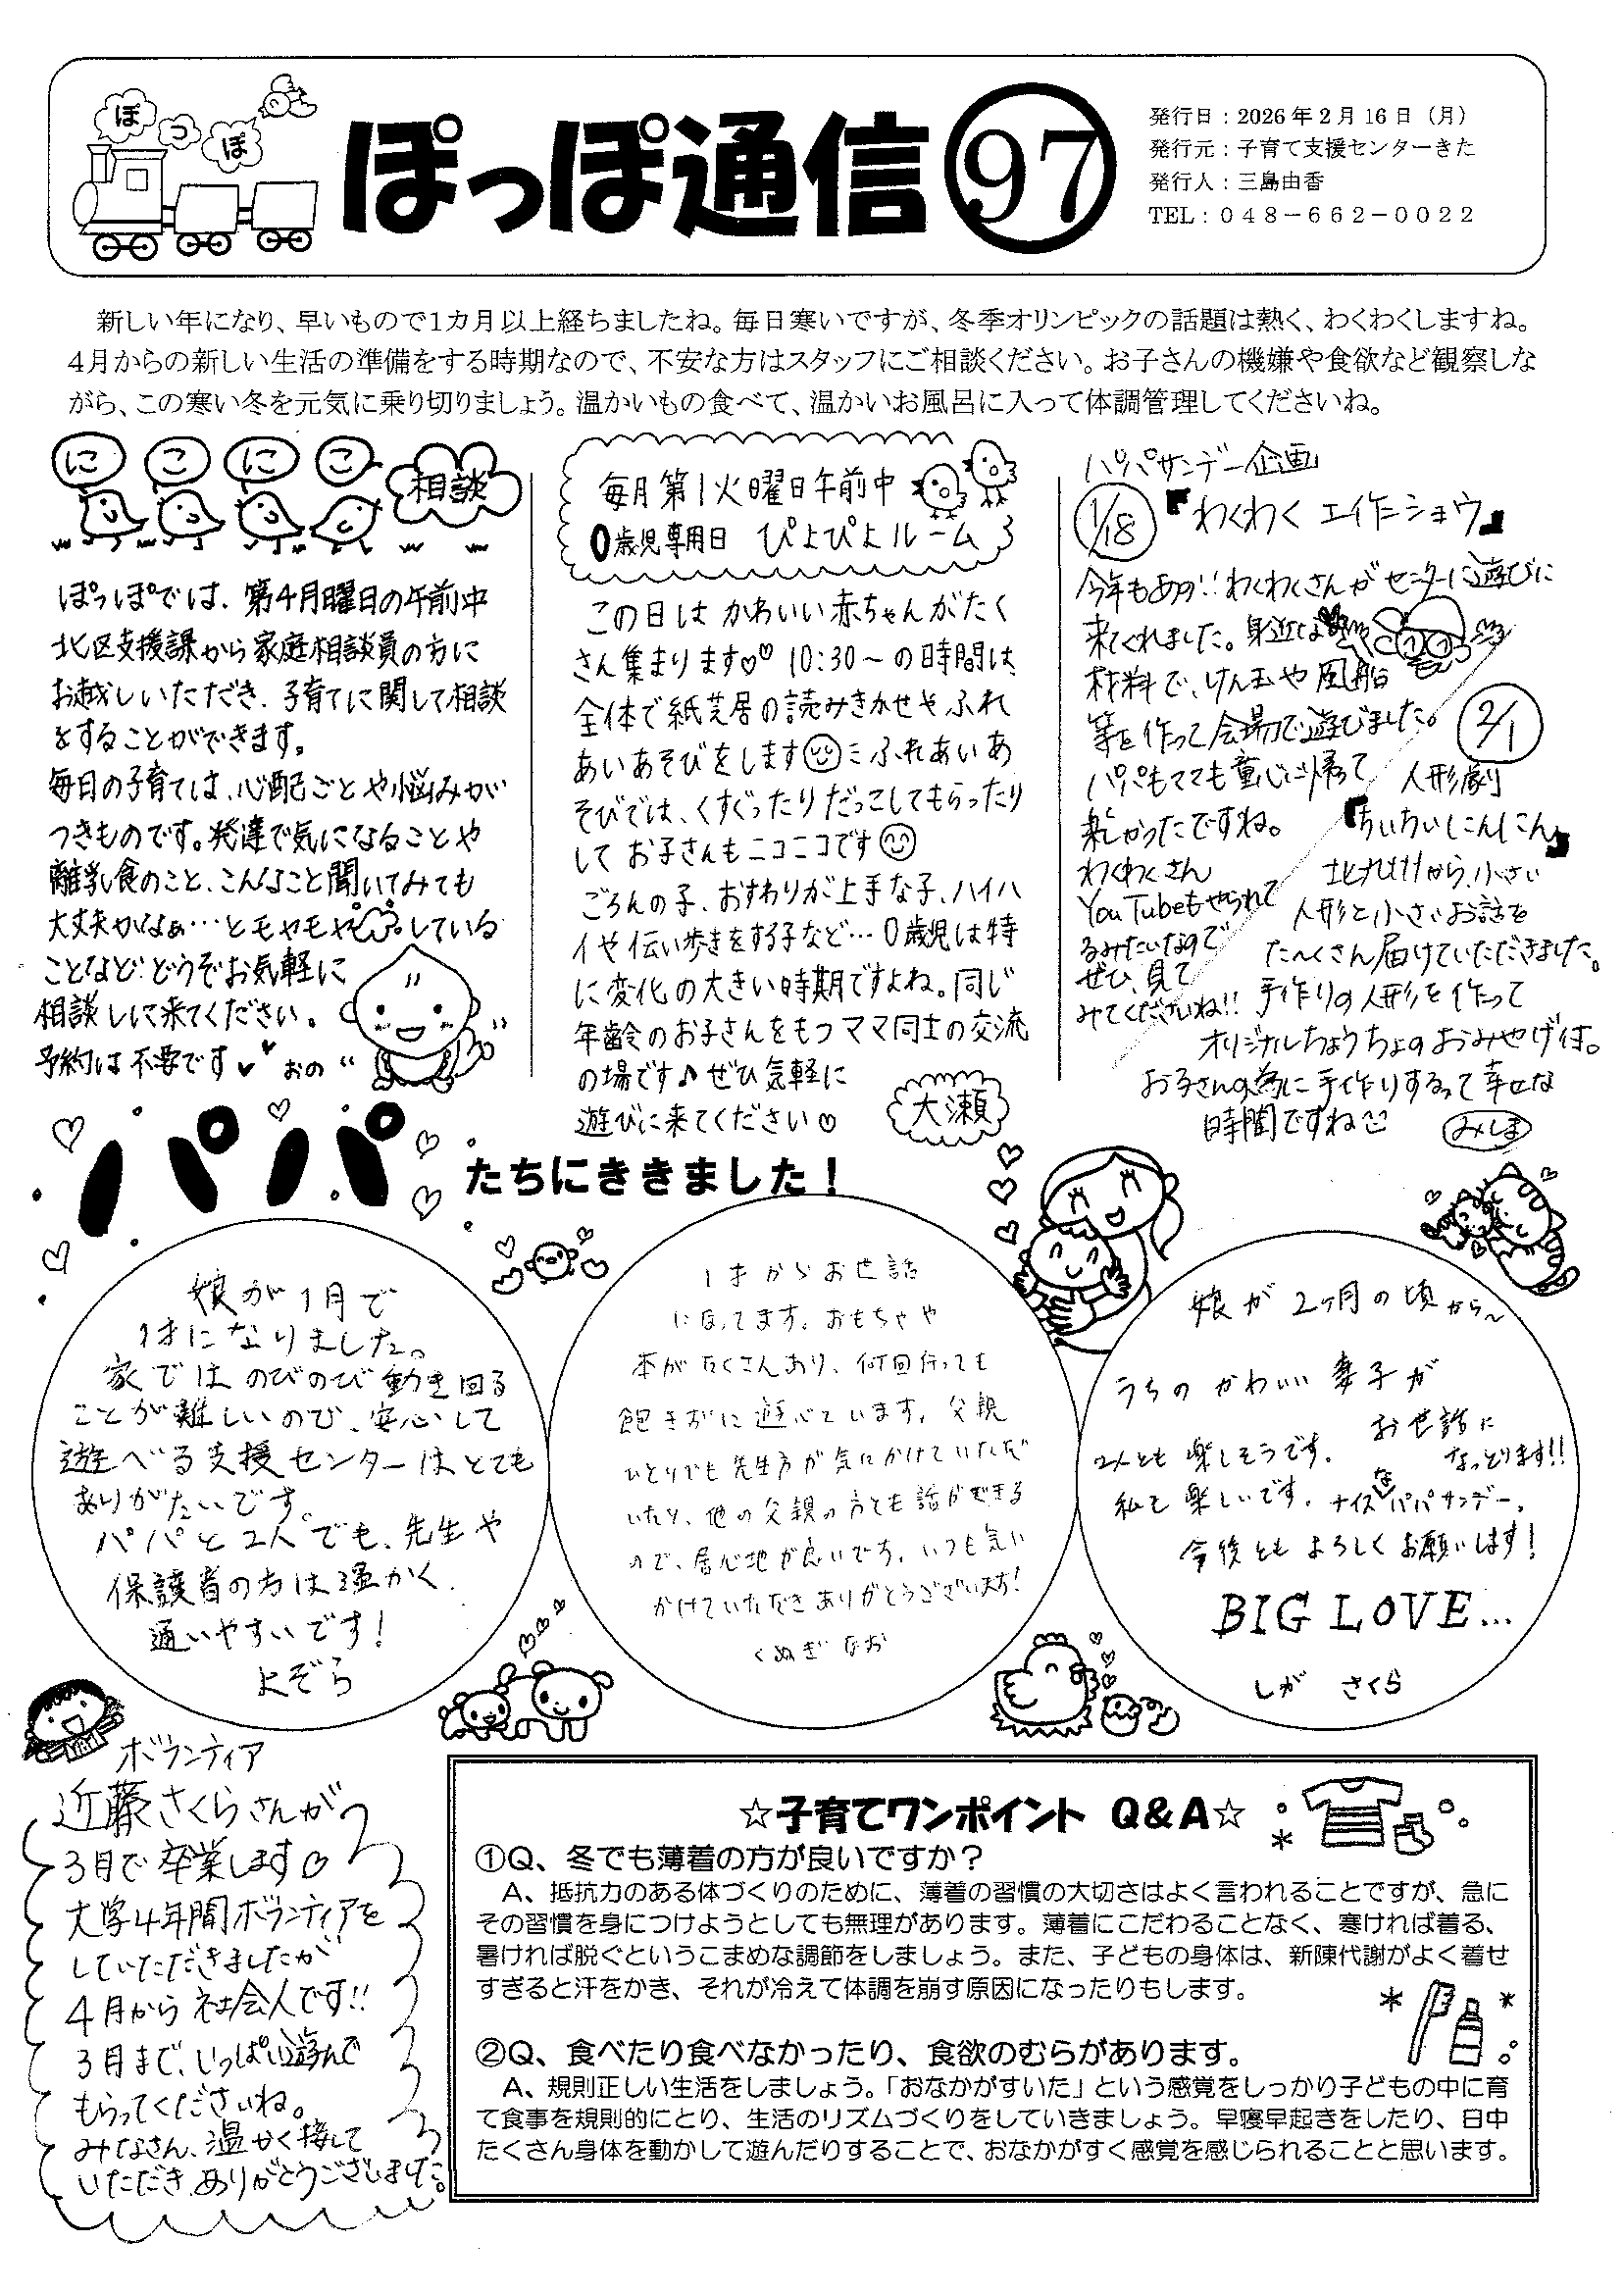 ぽ
っ
ぽ
ぽっぽ通信 97
発行日：2026年2月16日（月）
発行元：子育て支援センターきた
発行人：三島由香
TEL：048－662－0022
新しい年になり、早いもので1カ月以上経ちましたね。毎日寒いですが、冬季オリンピックの話題は熱く、わくわくしますね。
4月からの新しい生活の準備をする時期なので、不安な方はスタッフにご相談ください。お子さんの機嫌や食欲など観察しな
がら、この寒い冬を元気に乗り切りましょう。温かいもの食べて、温かいお風呂に入って体調管理してくださいね。
にこにこ相談
ぽっぽでは、第4月曜日の午前中
北区支援課から家庭相談員の方に
お越しいただき、子育てに関して相談
をすることができます。
毎日の子育ては、心配ごとや悩みが
つきものです。発達で気になることや
離乳食のこと、こんなこと聞いてみても
大丈夫かなぁ…とモヤモヤしている
ことなど…どうぞお気軽に
相談しに来てください。
予約は不要です♥ おの
毎月第1火曜日午前中
0歳児専用日 ぴよぴよルーム
この日は かわいい赤ちゃんがたく
さん集まります♡♡ 10:30～の時間は、
全体で紙芝居の読みきかせやふれ
あいあそびをします ふれあいあ
そびでは、くすぐったりだっこしてもらったり
して お子さんもニコニコです
ごろんの子、おすわりが上手な子、ハイハ
イや伝い歩きをする子など…0歳児は特
に変化の大きい時期ですよね。同じ
年齢のお子さんをもつママ同士の交流
の場です♪ ぜひ気軽に
遊びに来てください♡
大瀬
パパサンデー企画
1/18 『わくわく工作ショウ』
今年もあの!!わくわくさんがセンターに遊びに
来てくれました。身近な
材料で、けん玉や風船
等を作って会場で遊びました。
パパもママも童心に帰って
楽しかったですね。
わくわくさん
YouTubeもやられて
るみたいなので
ぜひ、見て
みてくださいね!!
2/1
人形劇
『ちいちいにんにん』
北九州から、小さい
人形と小さいお話を
た～くさん届けていただきました。
手作りの人形を作って
オリジナルちょうちょのおみやげ付。
お子さんの為に手作りするって幸せな
時間ですね
みしま
パパたちにききました！
娘が1月で
1才になりました。
家ではのびのび動き回る
ことが難しいので、安心して
遊べる支援センターはとても
ありがたいです。
パパと2人でも、先生や
保護者の方は温かく、
通いやすいです！
よぞら
1才からお世話
になってます。おもちゃや
本がたくさんあり、何回行っても
飽きずに遊んでいます。父親
ひとりでも先生方が気にかけていただ
いたり、他の父親の方とも話ができる
ので、居心地が良いです。いつも気に
かけていただきありがとうございます！
くぬぎ なお
娘が2ヶ月の頃から～
うちのかわいい妻子が
お世話に
なっとります!!
2人とも楽しそうです。
私も楽しいです。ナイスなパパサンデー。
今後ともよろしくお願いします！
BIG LOVE...
しが さくら
ボランティア
近藤さくらさんが
3月で卒業します♡
大学4年間ボランティアを
していただきましたが
4月から社会人です!!
3月まで、いっぱい遊んで
もらってくださいね。
みなさん、温かく接して
いただき、ありがとうございました。
☆子育てワンポイント Q＆A☆
①Q、冬でも薄着の方が良いですか？
A、抵抗力のある体づくりのために、薄着の習慣の大切さはよく言われることですが、急に
その習慣を身につけようとしても無理があります。薄着にこだわることなく、寒ければ着る、
暑ければ脱ぐというこまめな調節をしましょう。また、子どもの身体は、新陳代謝がよく着せ
すぎると汗をかき、それが冷えて体調を崩す原因になったりもします。
②Q、食べたり食べなかったり、食欲のむらがあります。
A、規則正しい生活をしましょう。「おなかがすいた」という感覚をしっかり子どもの中に育
て食事を規則的にとり、生活のリズムづくりをしていきましょう。早寝早起きをしたり、日中
たくさん身体を動かして遊んだりすることで、おなかがすく感覚を感じられることと思います。